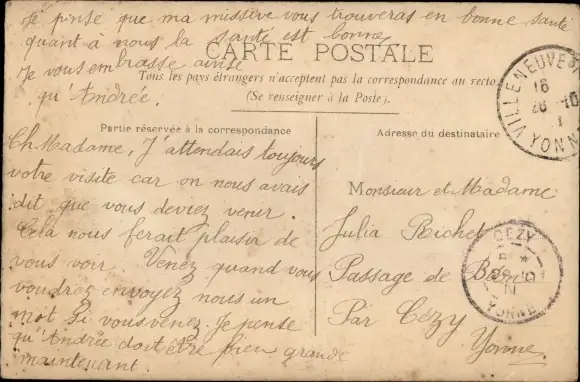 Je pense que ma missive vous trouveras en bonne santé
quant à nous la santé est bonne
Je vous embrasse ainsi
qu'Andrée.
CARTE POSTALE
Tous les pays étrangers n'acceptent pas la correspondance au recto
(Se renseigner à la Poste).
Partie réservée à la correspondance
Ch Madame, J'attendais toujours
votre visite car on nous avais
dit que vous deviez venir.
Cela nous ferait plaisir de
vous voir. Venez quand vous
voudrez envoyez nous un
mot si vous venez. Je pense
qu'Andrée doit être bien grande
maintenant.
Adresse du destinataire
Monsieur et Madame
Julia Richet
Passage de
Par Cézy
Yonne
VILLENEUVE
YONNE
CEZY
YONNE